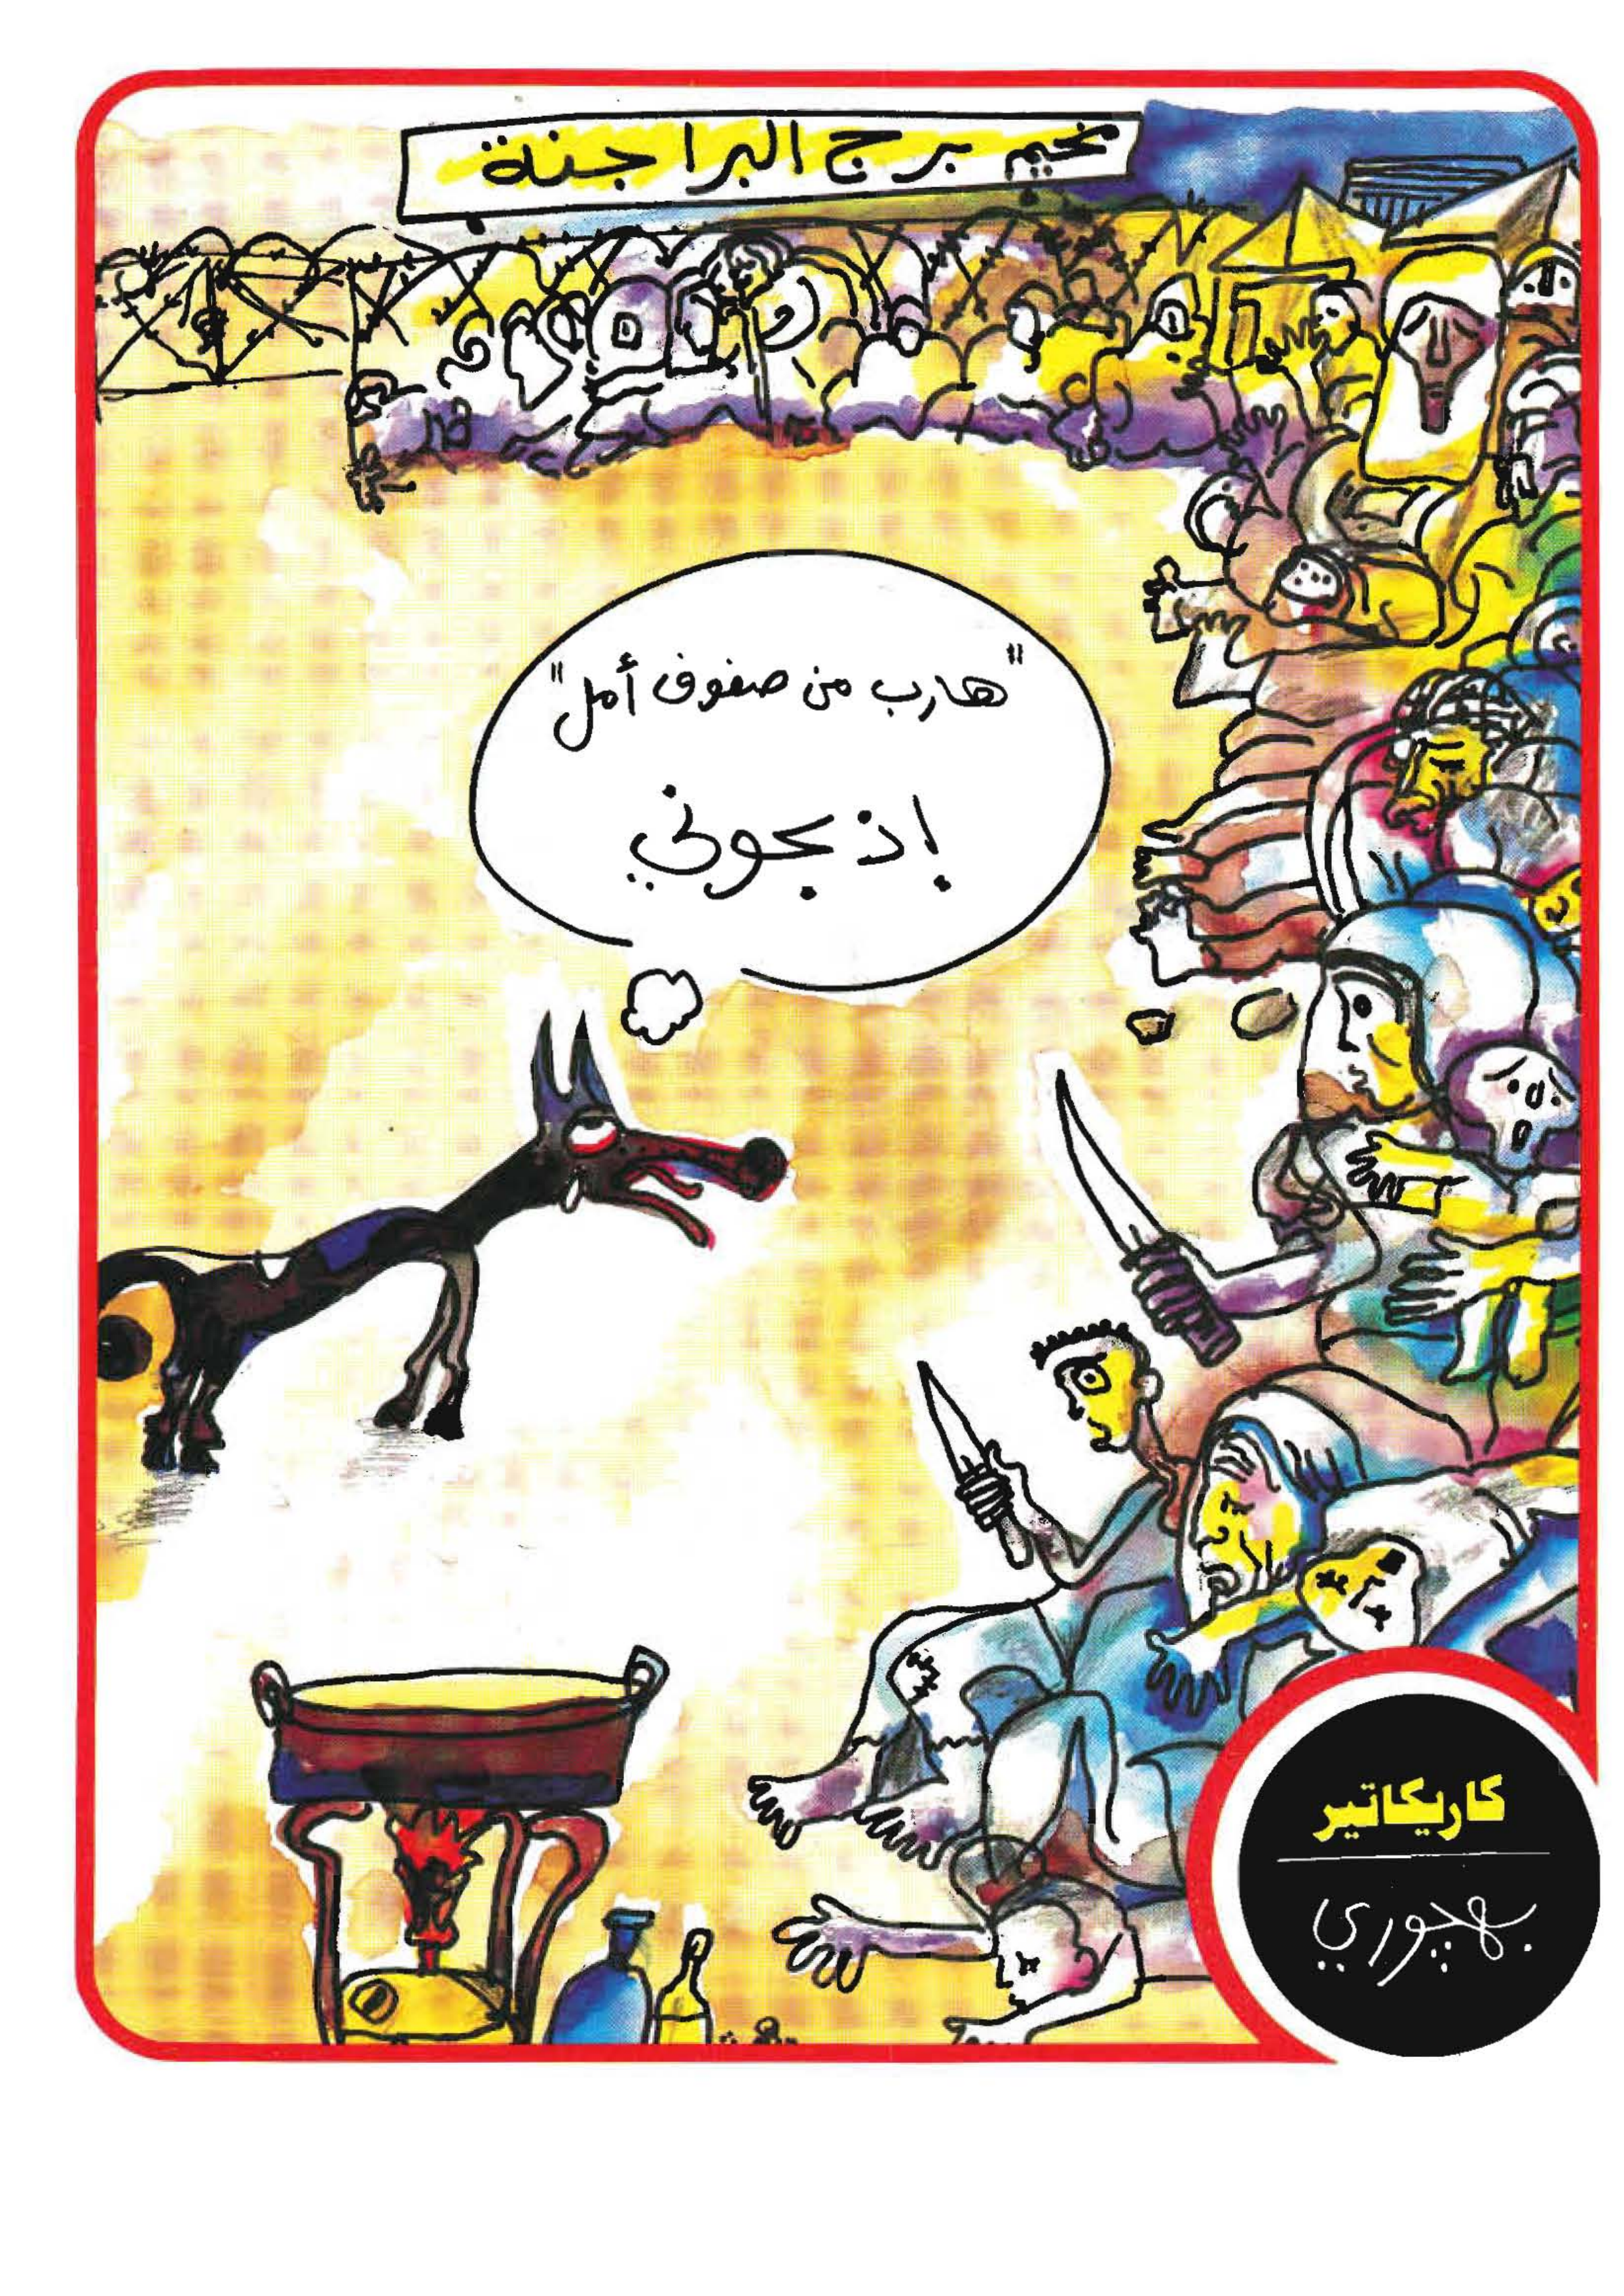 مخيم برج البراجنة
"هارب من صفوف أمل"
إذبحوني
كاريكاتير
بهجوري